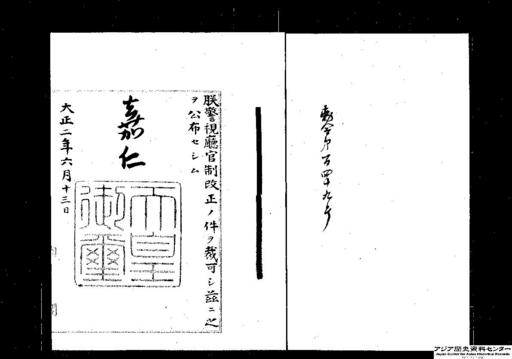 勅令第百四十九号
朕警視廳官制改正ノ件ヲ裁可シ茲ニ之
ヲ公布セシム
嘉仁
天皇
御璽
大正二年六月十三日
内閣
アジア歴史資料センター
Japan Center for Asian Historical Records